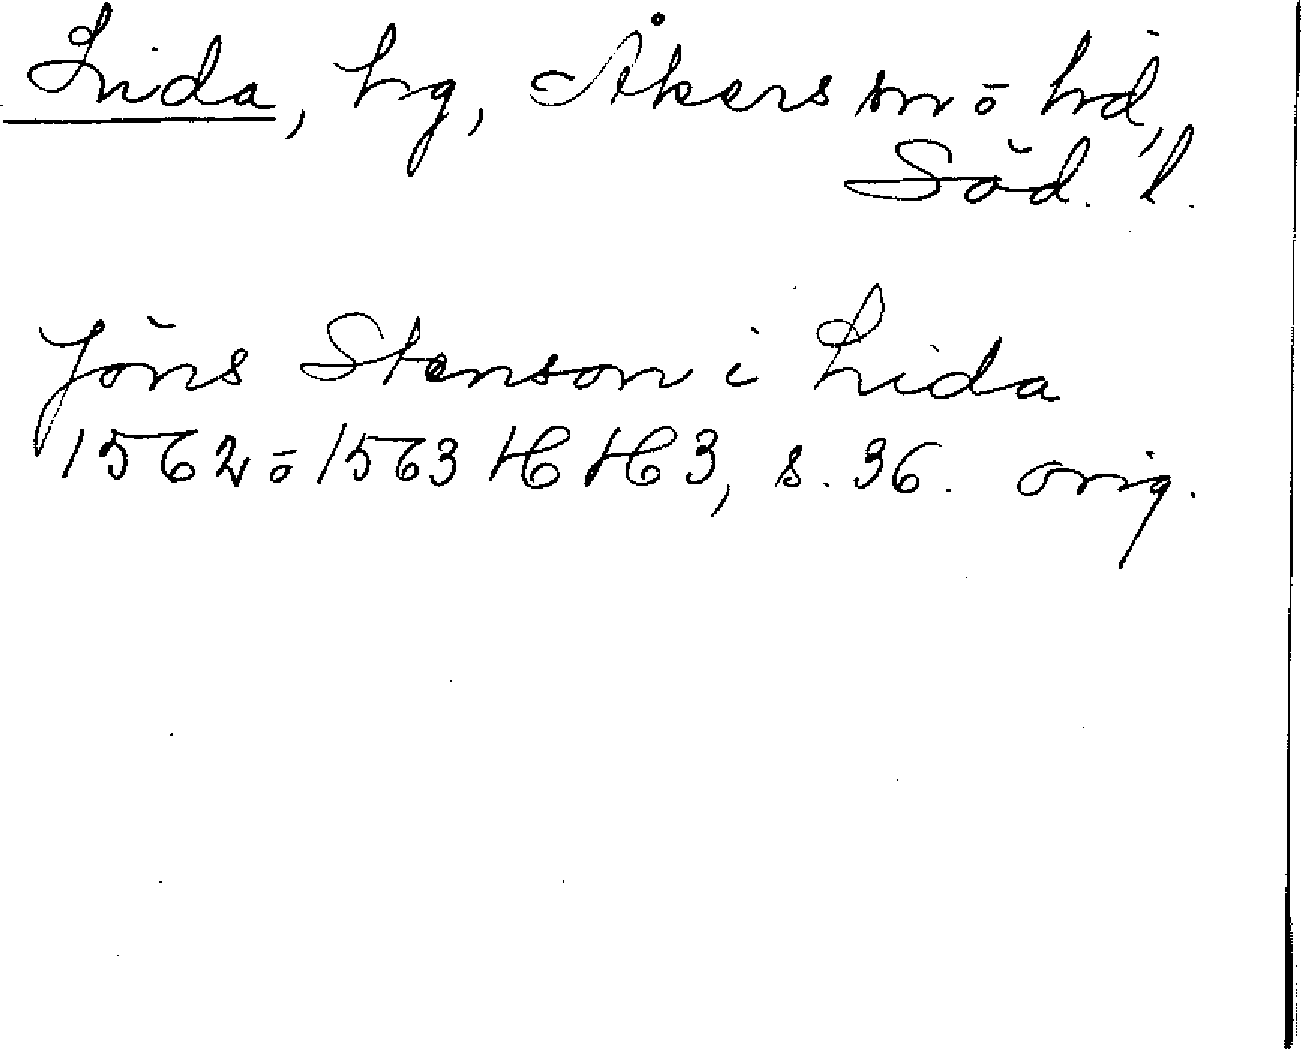 Lida, hg, Åkers sn o hd,
Söd. l.
Jöns Stenson i Lida
1562 o 1563 HH 3, s. 36. orig.